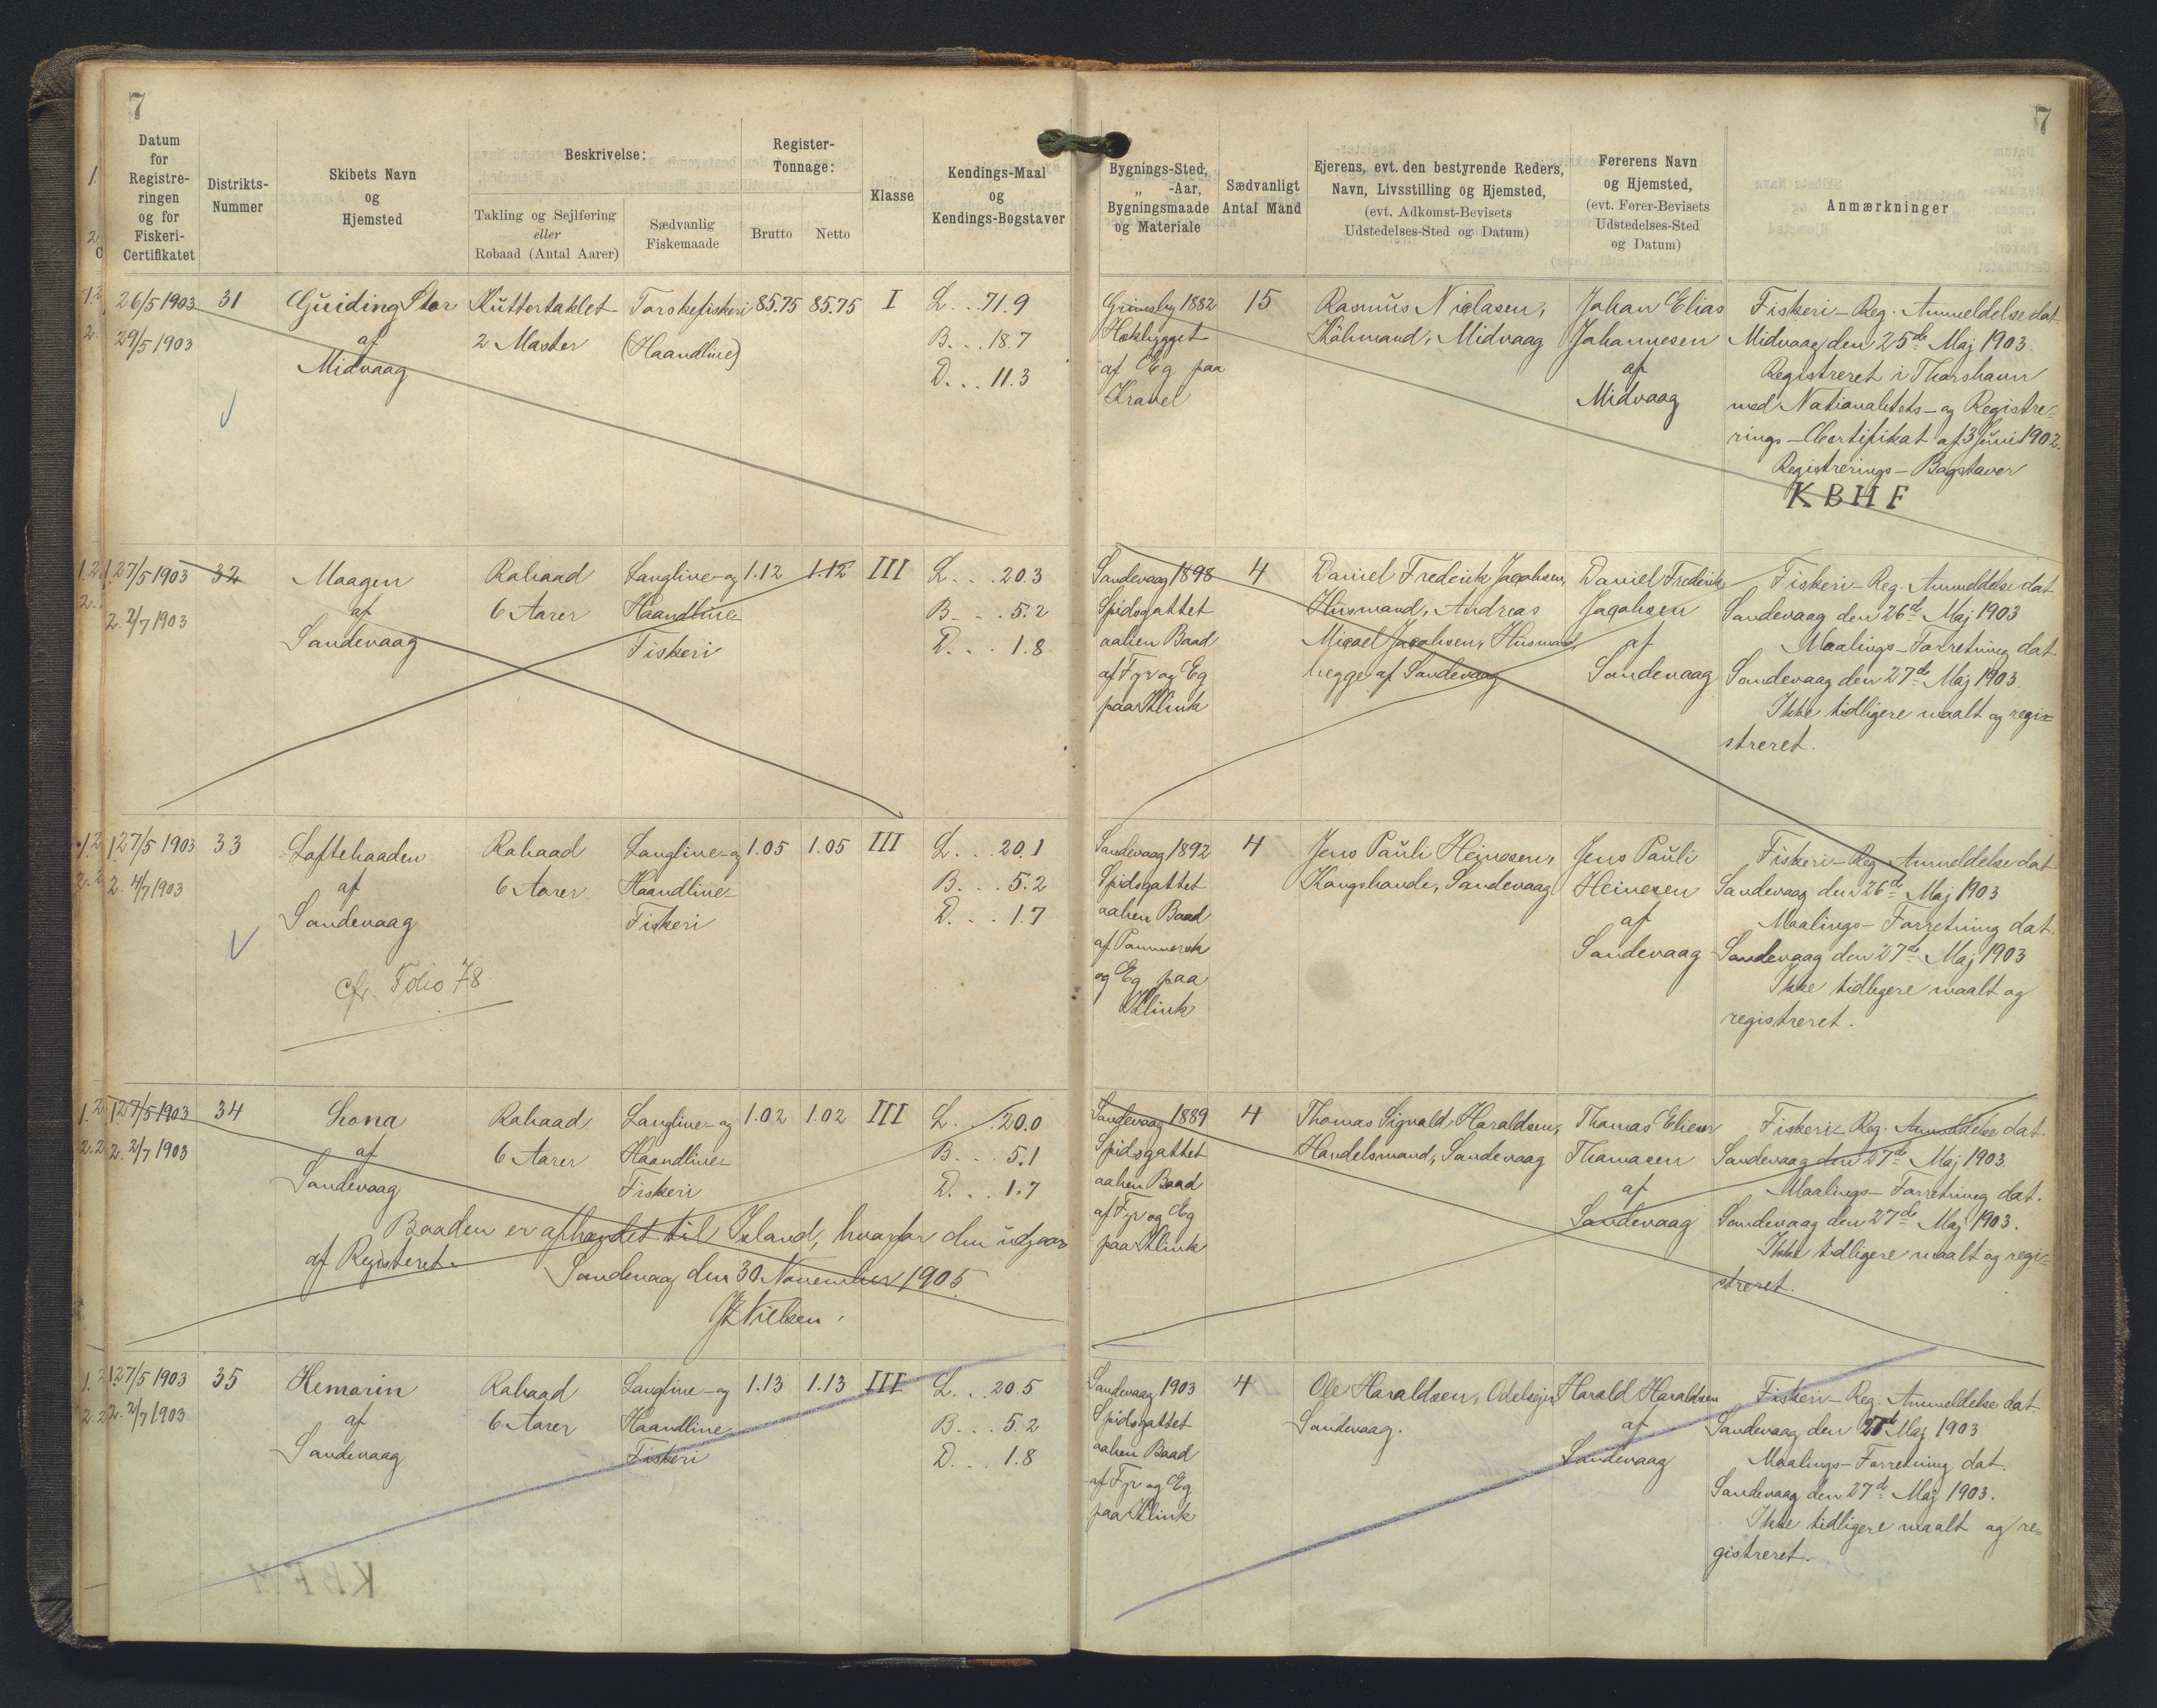 7
7
Datum for Registre-ringen og for Fiskeri-Certifikatet
Distrikts-Nummer
Skibets Navn og Hjemsted
Beskrivelse:
Takling og Sejlføring eller Robaad (Antal Aarer)
Sædvanlig Fiskemaade
Register-Tonnage:
Brutto
Netto
Klasse
Kendings-Maal og Kendings-Bogstaver
Bygnings-Sted, „ -Aar, Bygningsmaade og Materiale
Sædvanligt Antal Mand
Ejerens, evt. den bestyrende Reders, Navn, Livsstilling og Hjemsted, (evt. Adkomst-Bevisets Udstedelses-Sted og Datum)
Førerens Navn og Hjemsted, (evt. Fører-Bevisets Udstedelses-Sted og Datum)
Anmærkninger
26/5 1903
29/5 1903
31
Guiding Star
af
Midvaag
Kuttertaklet
2 Master
Torskefiskeri
(Haandline)
85.75
85.75
I
L. . . 71.9
B. . . 18.7
D. . . 11.3
Grimsby 1882
Hækbygget
af Eg paa
Kravel
15
Rasmus Niclasen,
Købmand, Midvaag
Johan Elias
Johannesen
af
Midvaag
Fiskeri-Reg. Anmeldelse dat.
Midvaag den 25de Maj 1903.
Registreret i Thorshavn
med Nationalitets- og Registre-
rings-Certifikat af 3 Juni 1902.
Registrerings-Bogstaver
KBHF
1. 27/5 1903
2. 2/7 1903
32
Maagen
af
Sandevaag
Robaad
6 Aarer
Langline- og
Haandline-
Fiskeri
1.12
1.12
III
L. . . 20.3
B. . . 5.2
D. . . 1.8
Sandevaag 1898
Spidsgattet
aaben Baad
af Fyr og Eg
paa Klink
4
Daniel Frederik Jacobsen,
Husmand, Andreas
Micael Jacobsen, Husmand,
begge af Sandevaag
Daniel Frederik
Jacobsen
af
Sandevaag
Fiskeri-Reg. Anmeldelse dat.
Sandevaag den 26de Maj 1903
Maalings-Forretning dat.
Sandevaag den 27de Maj 1903.
Ikke tidligere maalt og regi-
streret.
1. 27/5 1903
2. 4/7 1903
33
Loftebaaden
af
Sandevaag
cfr. Folio 78
Robaad
6 Aarer
Langline- og
Haandline-
Fiskeri
1.05
1.05
III
L. . . 20.1
B. . . 5.2
D. . . 1.7
Sandevaag 1892
Spidsgattet
aaben Baad
af Pommersk
og Eg paa
Klink
4
Jens Pauli Heinesen,
Kongsbonde, Sandevaag
Jens Pauli
Heinesen
af
Sandevaag
Fiskeri-Reg. Anmeldelse dat.
Sandevaag den 26de Maj 1903
Maalings-Forretning dat.
Sandevaag den 27de Maj 1903
Ikke tidligere maalt og
registreret.
1. 27/5 1903
2. 2/7 1903
34
Lona
af
Sandevaag
Robaad
6 Aarer
Langline- og
Haandline-
Fiskeri
1.02
1.02
III
L. . . 20.0
B. . . 5.1
D. . . 1.7
Baaden er afhændet til Island, hvorfor den udgaar
af Registeret.
Sandevaag den 30 November 1905.
Nielsen.
Sandevaag 1889
Spidsgattet
aaben Baad
af Fyr og Eg
paa Klink
4
Thomas Sigvald Haraldsen,
Handelsmand, Sandevaag
Thomas Elieser
Thomasen
af
Sandevaag
Fiskeri-Reg. Anmeldelse dat.
Sandevaag den 27de Maj 1903.
Maalings-Forretning dat.
Sandevaag den 27de Maj 1903.
Ikke tidligere maalt og regi-
streret.
1. 27/5 1903
2. 2/7 1903
35
Hemarin
af
Sandevaag
Robaad
6 Aarer
Langline- og
Haandline-
Fiskeri
1.13
1.13
III
L. . . 20.5
B. . . 5.2
D. . . 1.8
Sandevaag 1903
Spidsgattet
aaben Baad
af Fyr og Eg
paa Klink
4
Ole Haraldsen, Odelsejer
Sandevaag.
Harald Haraldsen
af
Sandevaag
Fiskeri-Reg. Anmeldelse dat.
Sandevaag den 27de Maj 1903
Maalings-Forretning dat.
Sandevaag den 27de Maj 1903.
Ikke tidligere maalt og re-
gistreret.